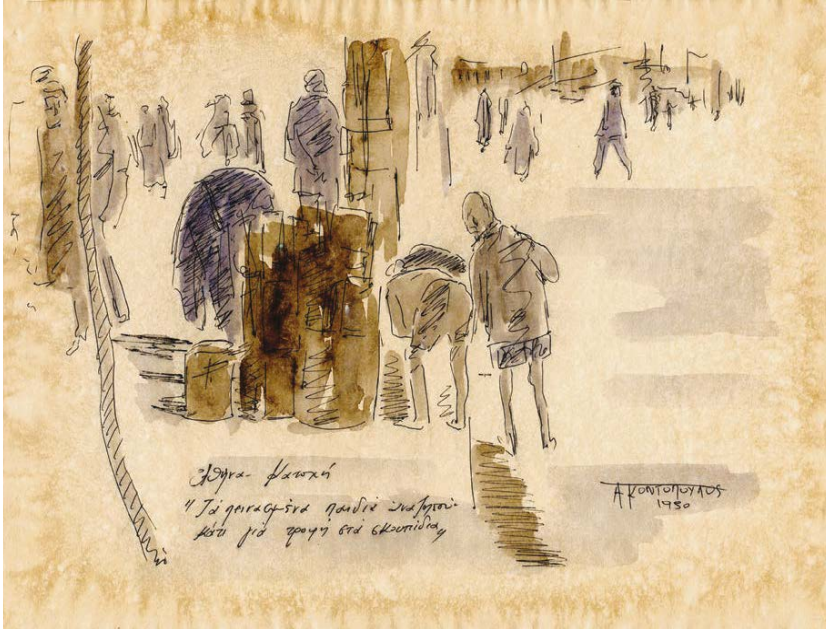 Αθήνα - Κατοχή
"Τά πεινασμένα παιδιά αναζητού-
κάτι γιά τροφή στά σκουπίδια„
Α. ΚΟΝΤΟΠΟΥΛΟΣ
1980